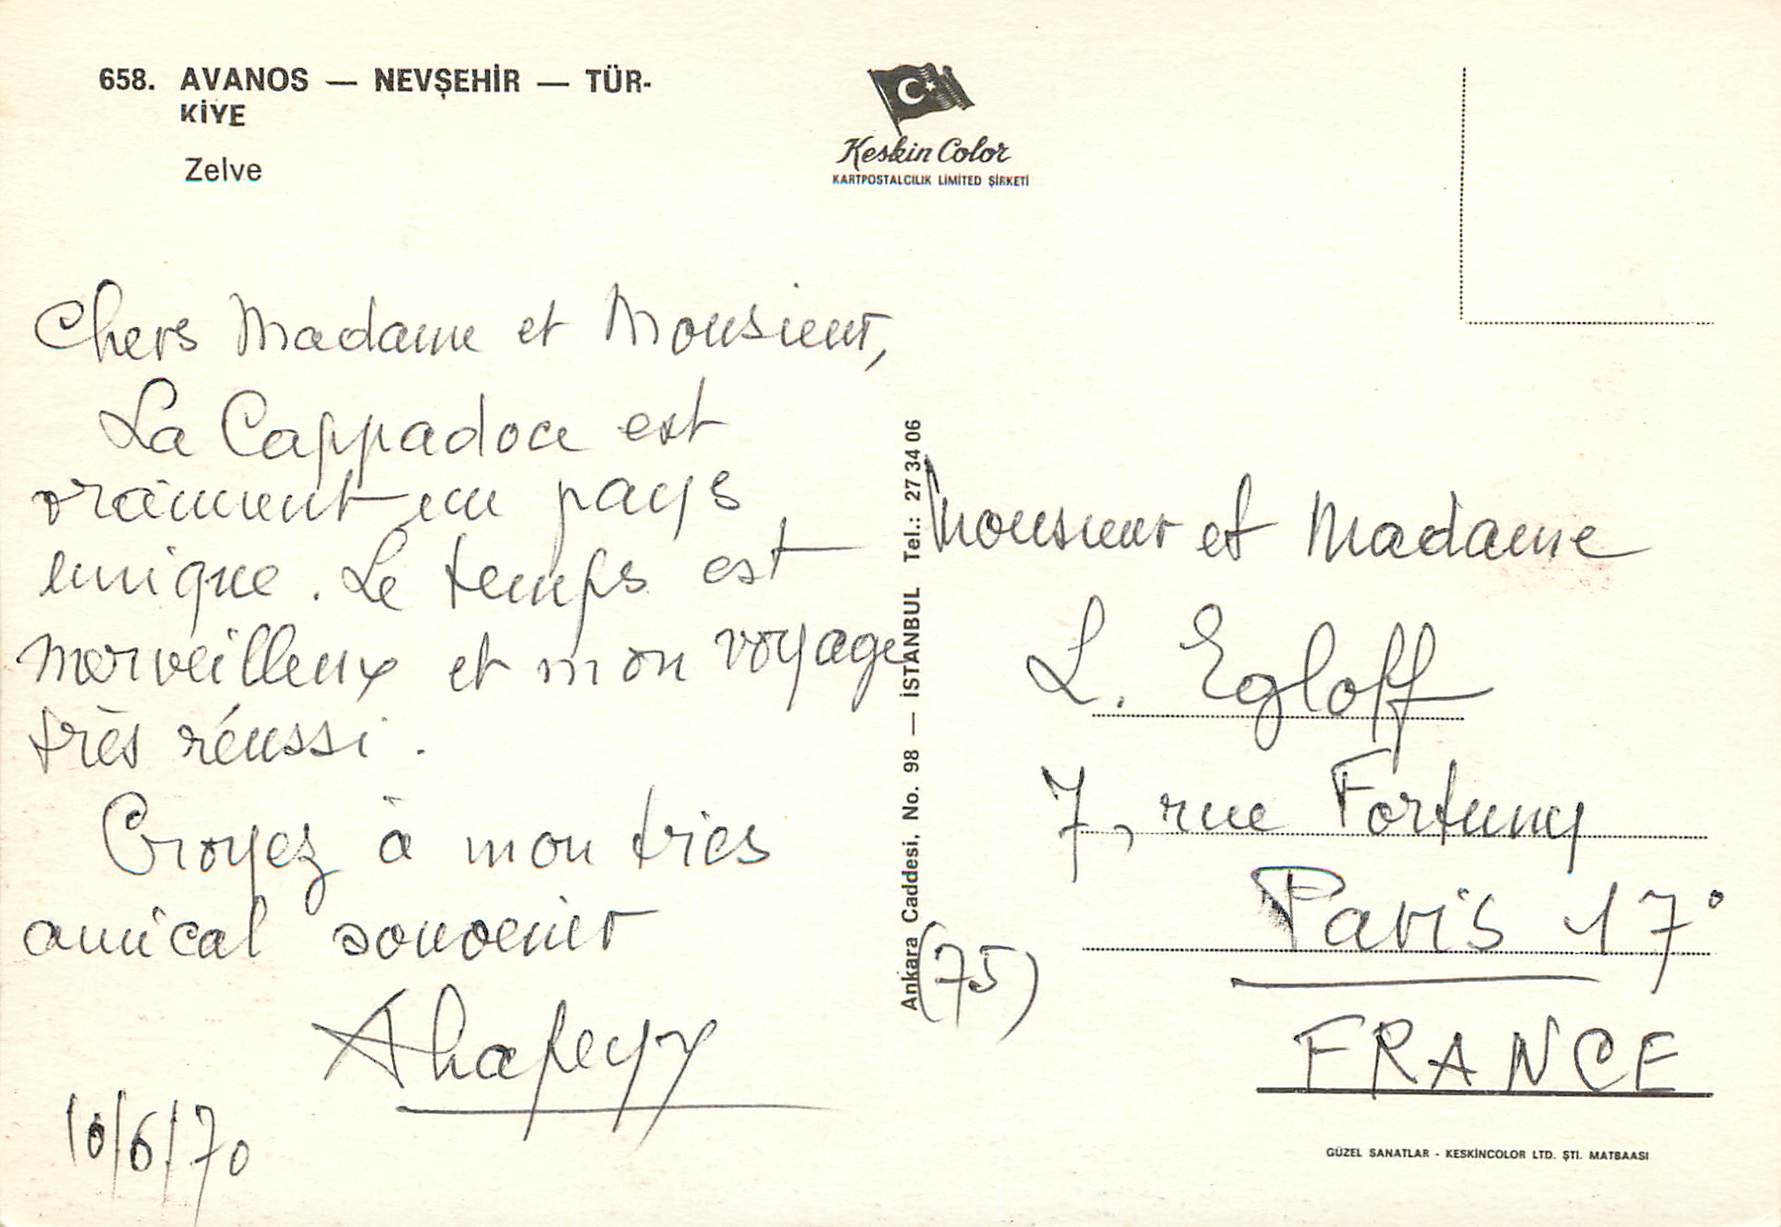 658. AVANOS — NEVŞEHİR — TÜR-
KİYE
Zelve
Keskin Color
KARTPOSTALCILIK LİMİTED ŞİRKETİ
Chers Madame et Monsieur,
La Cappadoce est
vraiment un pays
unique. Le temps est
merveilleux et mon voyage
très réussi.
Croyez à mon très
amical souvenir
10/6/70
Ankara Caddesi. No. 98 — İSTANBUL Tel.: 27 34 06
Monsieur et Madame
L. Egloff
7, rue Fortuny
Paris 17°
(75)
FRANCE
GÜZEL SANATLAR - KESKİNCOLOR LTD. ŞTI. MATBAASI